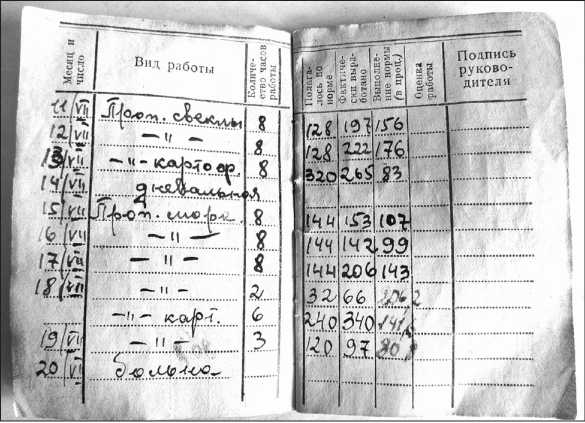 Месяц и число Вид работы Количество часов работы Полагалось по норме Фактически выработано Выполнение нормы (в проц.) Оценка работы Подпись руководителя
11/VII Проп. свеклы 8 128 197 156
12/VII —〃— 8 128 222 176
13/VII —〃— картоф. 8 320 265 83
14/VII дневальная
15/VII Проп. морк. 8 144 153 107
16/VII —〃— 8 144 142 99
17/VII —〃— 8 144 206 143
18/VII —〃— 2 32 66
—〃— карт. 6 240 340
19/VII —〃— 3 120 97 80
20/VII больна